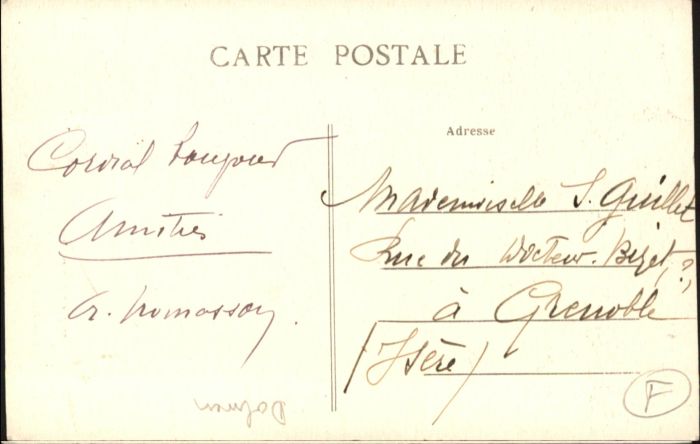 CARTE POSTALE
Cordial bonjour
Amitiés
A. Thomasson.
Adresse
Mademoiselle S. Guillet
Rue du Docteur. Bizet, ?,
à Grenoble
(Isère)
F